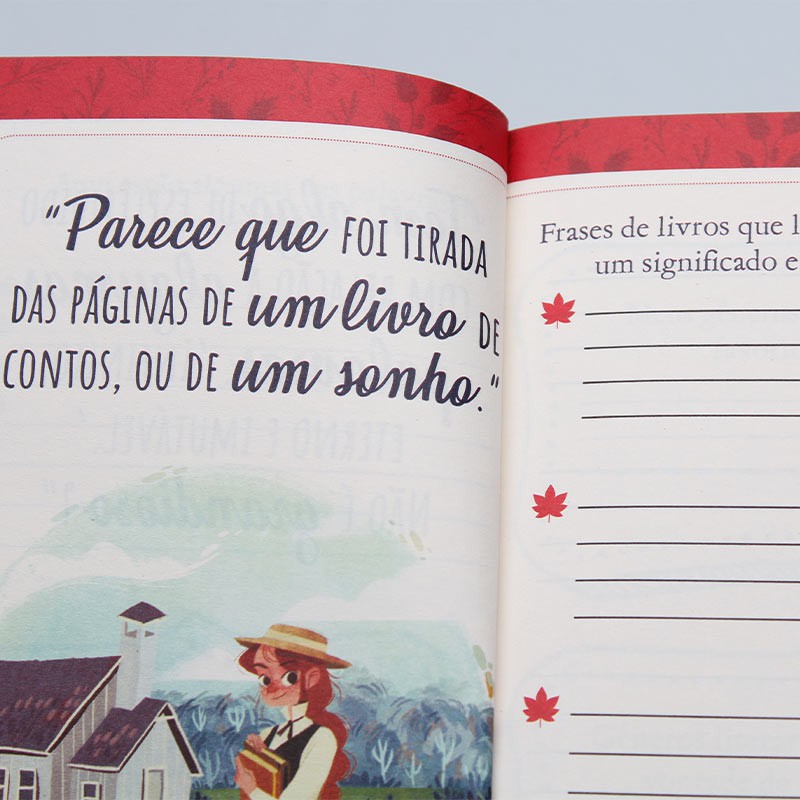 “Parece que FOI TIRADA
DAS PÁGINAS DE um livro DE
CONTOS, OU DE um sonho.”
Frases de livros que
um significado